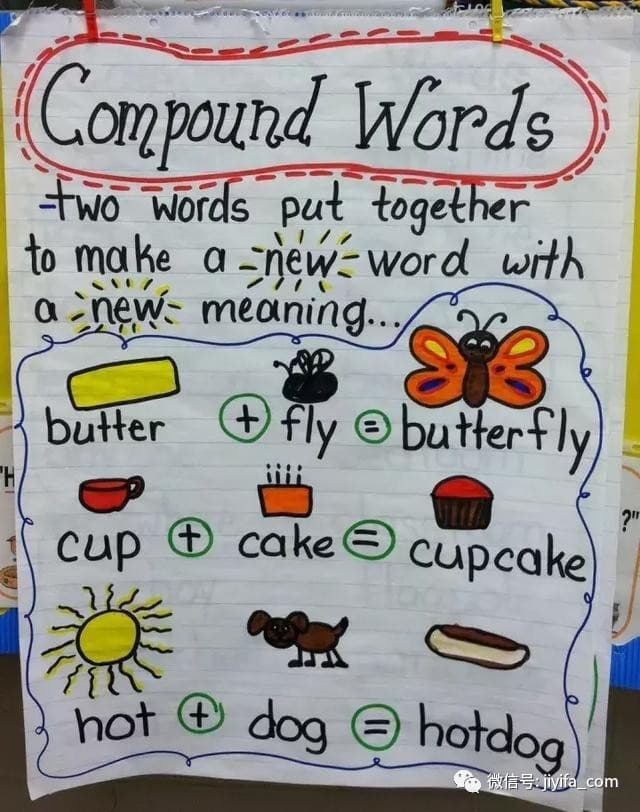 Compound Words
-two words put together
to make a -new- word with
a -new- meaning...
butter + fly = butterfly
cup + cake = cupcake
hot + dog = hotdog
"H
?"
微信号: jiyifa_com